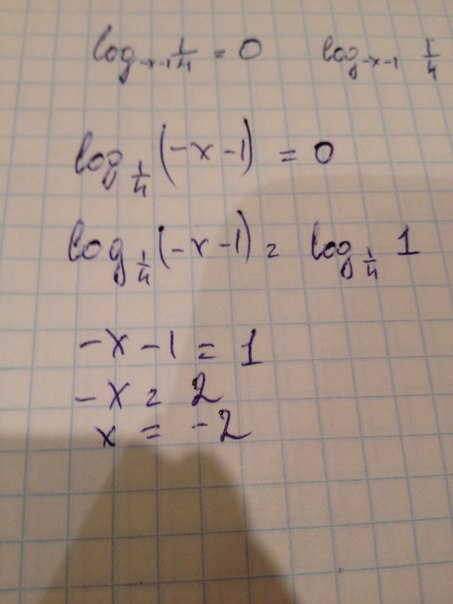 log₋ₓ₋₁ 1/4 = 0 log₋ₓ₋₁ 1/4
log_{1/4} (-x-1) = 0
log_{1/4} (-x-1) = log_{1/4} 1
-x-1 = 1
-x = 2
x = -2